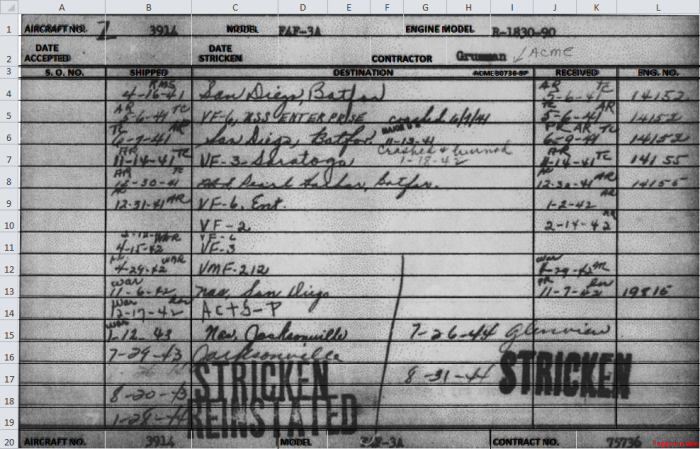 A B C D E F G H I J K L
1 AIRCRAFT NO. Z 3914 MODEL F4F-3A ENGINE MODEL R-1830-90
2 DATE ACCEPTED DATE STRICKEN CONTRACTOR Grumman ✓ Acme
3 S. O. NO. SHIPPED DESTINATION ACME 80736-BP RECEIVED ENG. NO.
4 4-16-41 RMS San Diego, Batfor AR 5-6-41 TC 14152
5 AR 5-6-41 TC VF-6, USS ENTERPRISE crashed 6/9/41 TC 5-6-41 AR 14152
6 TC 6-9-41 AR San Diego, Batfor MAJOR 11-13-41 6-9-41 TC 14152
7 AR 11-14-41 TC VF-3-Saratoga Crashed & burned 1-18-42 AR 11-14-41 TC 14155
8 AR 12-30-41 AR Pearl Harbor, Batfor. 12-30-41 AR 14155
9 12-31-41 AR VF-6, Ent. 1-2-42
10 VF-2 2-14-42
11 4-15-42 WAR VF-6
VF-3
12 4-29-42 WAR VMF-212 war 4-29-42
13 war 11-6-42 Nas, San Diego war 11-7-42
14 war 12-17-42 ACTG-P
15 war 1-12-43 Nas, Jacksonville 7-26-44 Glenview
16 7-29-43 Jacksonville
17 STRICKEN 8-31-44 STRICKEN
18 8-20-43 REINSTATED
19 1-28-44
20 AIRCRAFT NO. 3914 MODEL F4F-3A CONTRACT NO. 75736